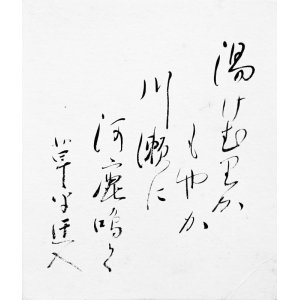 湯けむりか
もやか
川瀬に
河鹿鳴く